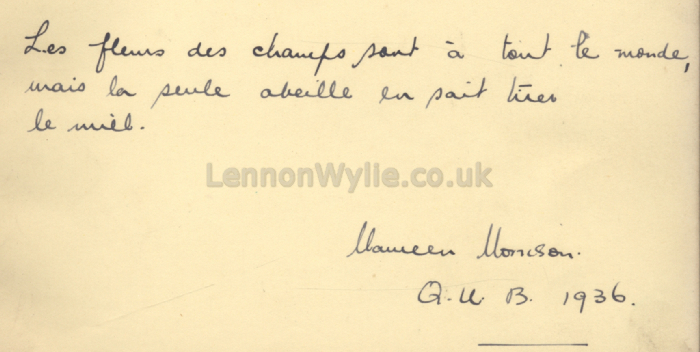 Les fleurs des champs sont à tout le monde,
mais la seule abeille en sait tirer
le miel.
LennonWylie.co.uk
Maureen Morrison.
Q.U.B. 1936.